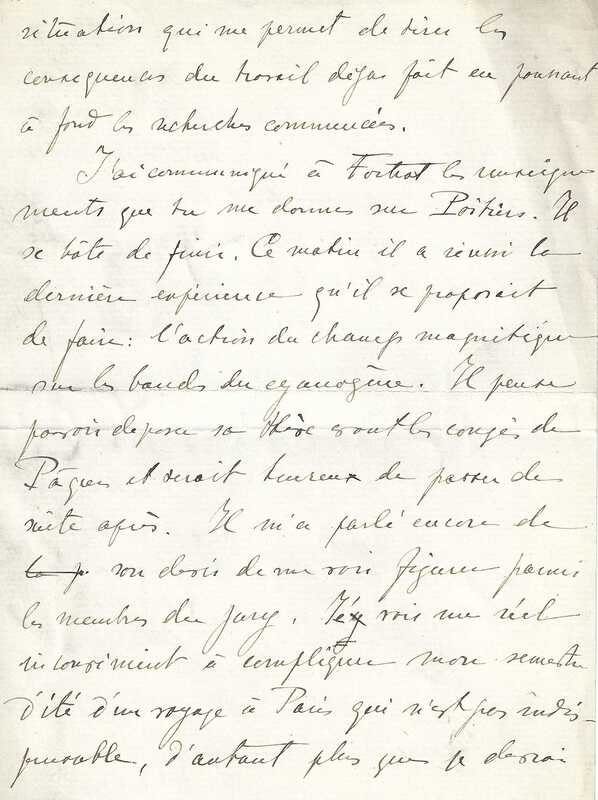 situation qui me permet de tirer les
consequences du travail dejas fait en poussant
à fond les recherches commencées.
J'ai communiqué à Fortrat les renseigne
ments que tu me donnes sur Poitiers. Il
se hâte de finir. Ce matin il a réussi la
dernière expérience qu'il se proposait
de faire: l'action du champ magnétique
sur les bandes du cyanogène. Il pense
pouvoir deposer sa thèse avant les congés de
Pâques et serait heureux de passer de
suite après. Il m'a parlé encore de
son desir de me voir figurer parmi
les membres du jury. J'y vois un réel
inconvenient à compliquer mon semestre
d'été d'un voyage à Paris qui n'est pas indis-
pensable, d'autant plus que je devrai